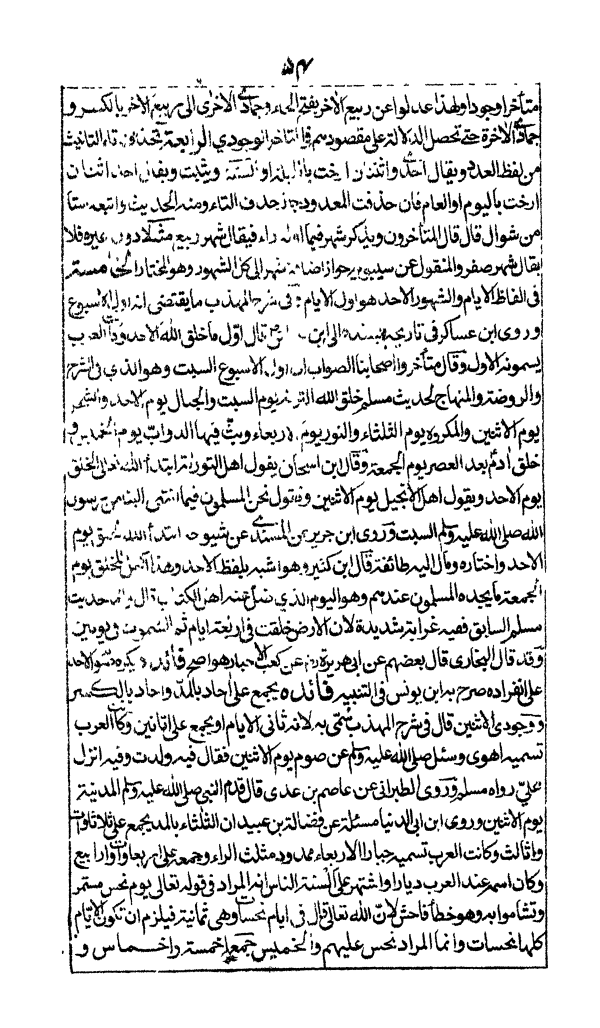 متأخرا وجودا ولهذا عدلوا عن ربيع الآخر بفتح الخاء وجمادى الاخرى الى ربيع الاخر بالكسر و
جمادى الاخرة حتى تحصل الدلالة على مقصودهم فى التأخر الوجودي الرابعة تحذف تاء التانيث
من لفظ العدد ويقال احدى واثنتان ارخت بالليلة او السنة ويثبت ويقال احد اثنان
ارخت باليوم او العام فان حذفت المعدود جاز حذف التاء ومنه الحديث واتبعه ستا
من شوال قال قال المتأخرون ويذكر شهر فيما اوله راء فيقال شهر ربيع مثلا دون غيره فلا
يقال شهر صفر والمنقول عن سيبويه جواز اضافة شهر الى كل الشهور وهو المختار
فى الفاظ الايام والشهور الاحد هو اول الايام فى شرح المهذب ما يقتضى انه اول الاسبوع
وروى ابن عساكر فى تاريخه بسنده الى ابن قال اول ما خلق الله الاحد العرب
يسمونه الاول وقال متأخروا اصحابنا الصواب ان اول الاسبوع السبت وهو الذي فى الشرح
والروضة والمنهاج لحديث مسلم خلق الله التربة يوم السبت والجبال يوم الاحد والشجر
يوم الاثنين والمكروه يوم الثلثاء والنور يوم الاربعاء وبث فيها الدواب يوم الخميس و
خلق ادم بعد العصر يوم الجمعة وقال ابن اسحاق يقول اهل التوراة ابتدأ الله الخلق
يوم الاحد ويقول اهل الانجيل يوم الاثنين ونقول نحن المسلمون فيما انتهى الينا من رسول
الله صلى الله عليه وسلم السبت وروى ابن جرير عن السدى عن شيوخه ابتدأ الله الخلق يوم
الاحد واختاره ومال اليه طائفة قال ابن كثير وهو اشبه بلفظ الاحد ولهذا الخلق يوم
الجمعة عندهم وهو اليوم الذي ضل عنه اهل الكتاب قال واما حديث
مسلم السابق ففيه غرابة شديدة لان الارض خلقت فى اربعة ايام ثم السموت فى يومين
وقد قال البخارى قال بعضهم عن ابى هريرة عن كعب الاحبار هو اصح فائده يكره صوم الاحد
على انفراده صرح به ابن يونس فى التنبيه فائده يجمع على احاد بالمد واحاد بالكسر
ووجودى الاثنين قال فى شرح المهذب سمى به لانه ثانى الايام ويجمع على اثانين وكانت العرب
تسميه اهون وسئل صلى الله عليه وسلم عن صوم يوم الاثنين فقال فيه ولدت وفيه انزل
علي رواه مسلم وروى الطبرانى عن عاصم بن عدى قال قدم النبى صلى الله عليه وسلم المدينة
يوم الاثنين وروى ابن ابى الدنيا مسئلة عن فضالة بن عبيد ان الثلثاء بالمد يجمع على ثلاثاوات
واثالث وكانت العرب تسميه جبارا الاربعاء ممدود مثلث الراء وجمعه على اربعاوات وارابيع
وكان اسمه عند العرب ديارا واشتهر على السنة الناس انه المراد فى قوله تعالى يوم نحس مستمر
وتشاموا به وهو خطأ فاحش لان الله تعالى قال فى ايام نحسات وهى ثمانية فيلزم ان تكون الايام
كلها نحسات وانما المراد نحس عليهم والخميس جمعه اخمسة واخماس و